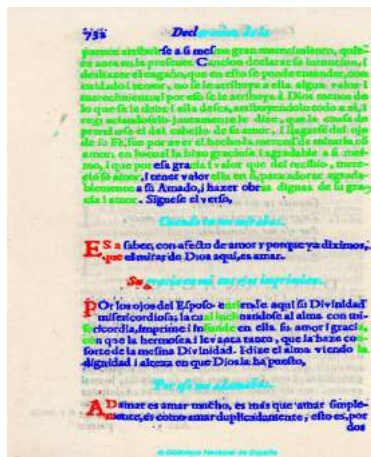 732 Declaracion de la
pamos atribuirse a si mesma gran merecimiento, quie-
re aora en la presente Cancion declarar su intencion, i
deshazer el engaño, que en esto se puede entender, con
cuidado i temor, no se le atribuya a ella algun valor i
merecimiento; i por esso se le atribuya a Dios menos de
lo que se le debe i ella desea, atribuyendolo todo a el, i
regraciandoselo juntamente le dize, que la causa de
prenderse el del cabello de su amor, i llagarse del ojo
de su Fè, fue por aver el hecho la merced de mirarla cõ
amor; en lo cual la hizo graciosa i agradable a si mes-
mo, i que por esta gracia i valor que del recibio, mere-
cio su amor, i tener valor ella en si, para adorar agrada-
blemente a su Amado, i hazer obras dignas de su gra-
cia i amor. Siguese el verso,
Cuando tu me mirabas.
ES a saber, con afecto de amor: porque ya diximos,
que el mirar de Dios aqui, es amar.
Su gracia en mi tus ojos imprimian.
POr los ojos del Esposo entiende aqui su Divinidad
misericordiosa; la cual inclinandose al alma con mi-
sericordia, imprime i infunde en ella su amor i gracia,
con que la hermosea i levanta tanto, que la haze con-
sorte de la mesma Divinidad. I dize el alma viendo la
dignidad i alteza en que Dios la ha puesto,
Por esso me adamabas.
ADamar es amar mucho, es mas que amar simple-
mente, es como amar duplicadamente; esto es, por
dos
© Biblioteca Nacional de España